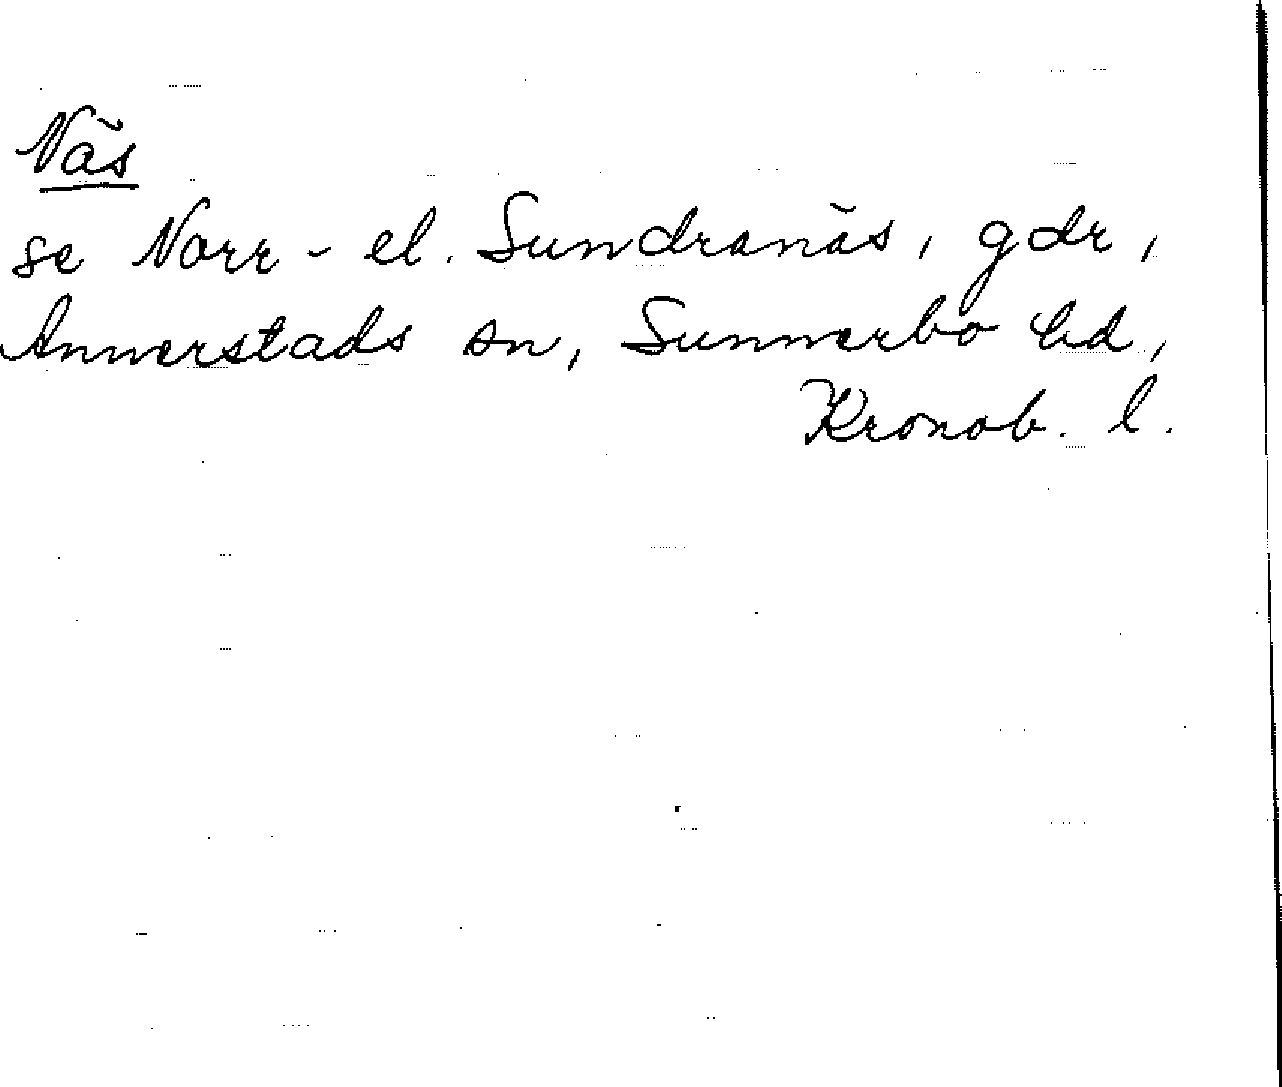 Näs
se Norr- el. Sundranäs, gdr,
Annerstads sn, Sunnerbo hd,
Kronob. l.